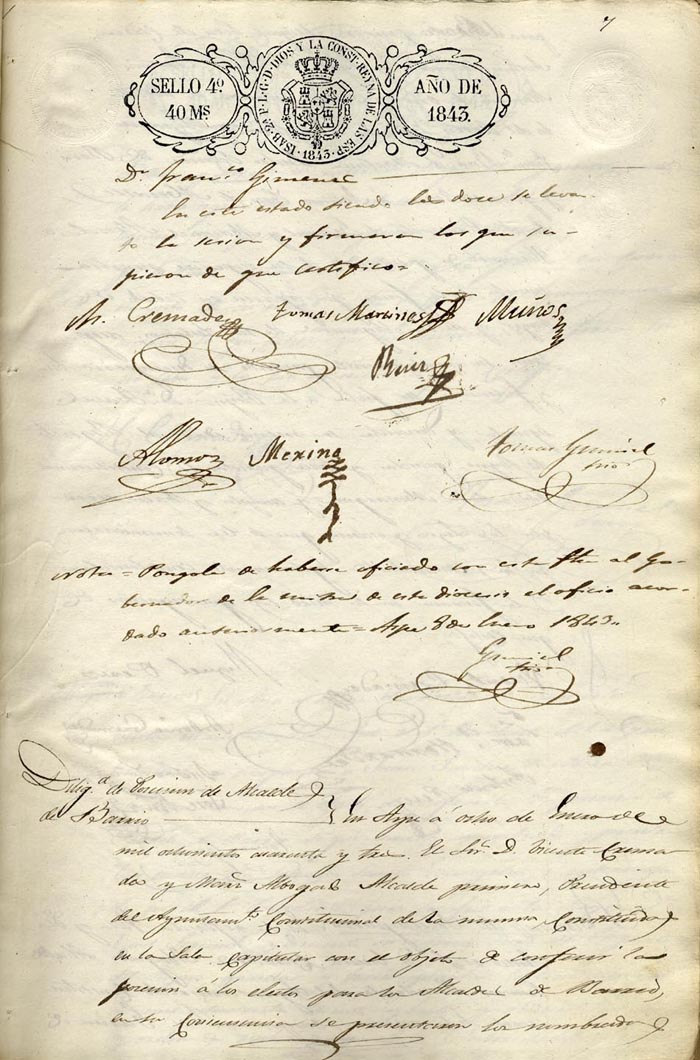 7
SELLO 4º
40 Ms
ISAB. 2ª P. L. G. D. DIOS Y LA CONST. REYNA DE LAS ESP. 1843.
AÑO DE
1843.
Dn. Franco. Gimenez
En este estado siendo las doce se levan-
to la sesion y firmaron los que su-
pieron de que certifico=
Cremades Tomas Martines Muños
Ruiz
Merino
Tomas
srio
Nota= Pongola de haberse oficiado con esta fha al Go-
bernador de la mitra de este diocesis el oficio acor-
dado anteriormente= Aspe 8 de Enero 1843=
srio
Diliga. de Posesion de Alcalde
de Barrio
En Aspe á ocho de Enero de
mil ochocientos cuarenta y tres. El Sor. D. Vicente Crema
des y Abogado Alcalde primero, Presidente
del Ayuntamto. Constitucional de la misma, Constituido
en la Sala Capitular con el objeto de conferir la
posesion á los electos para los Alcaldes de Barrio,
en su consecuencia se presentaron los nombrados